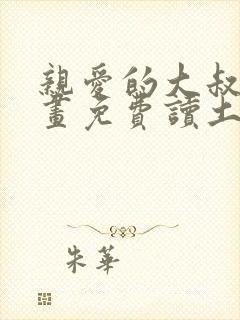 親愛的大叔
畫免費讀土
朱華